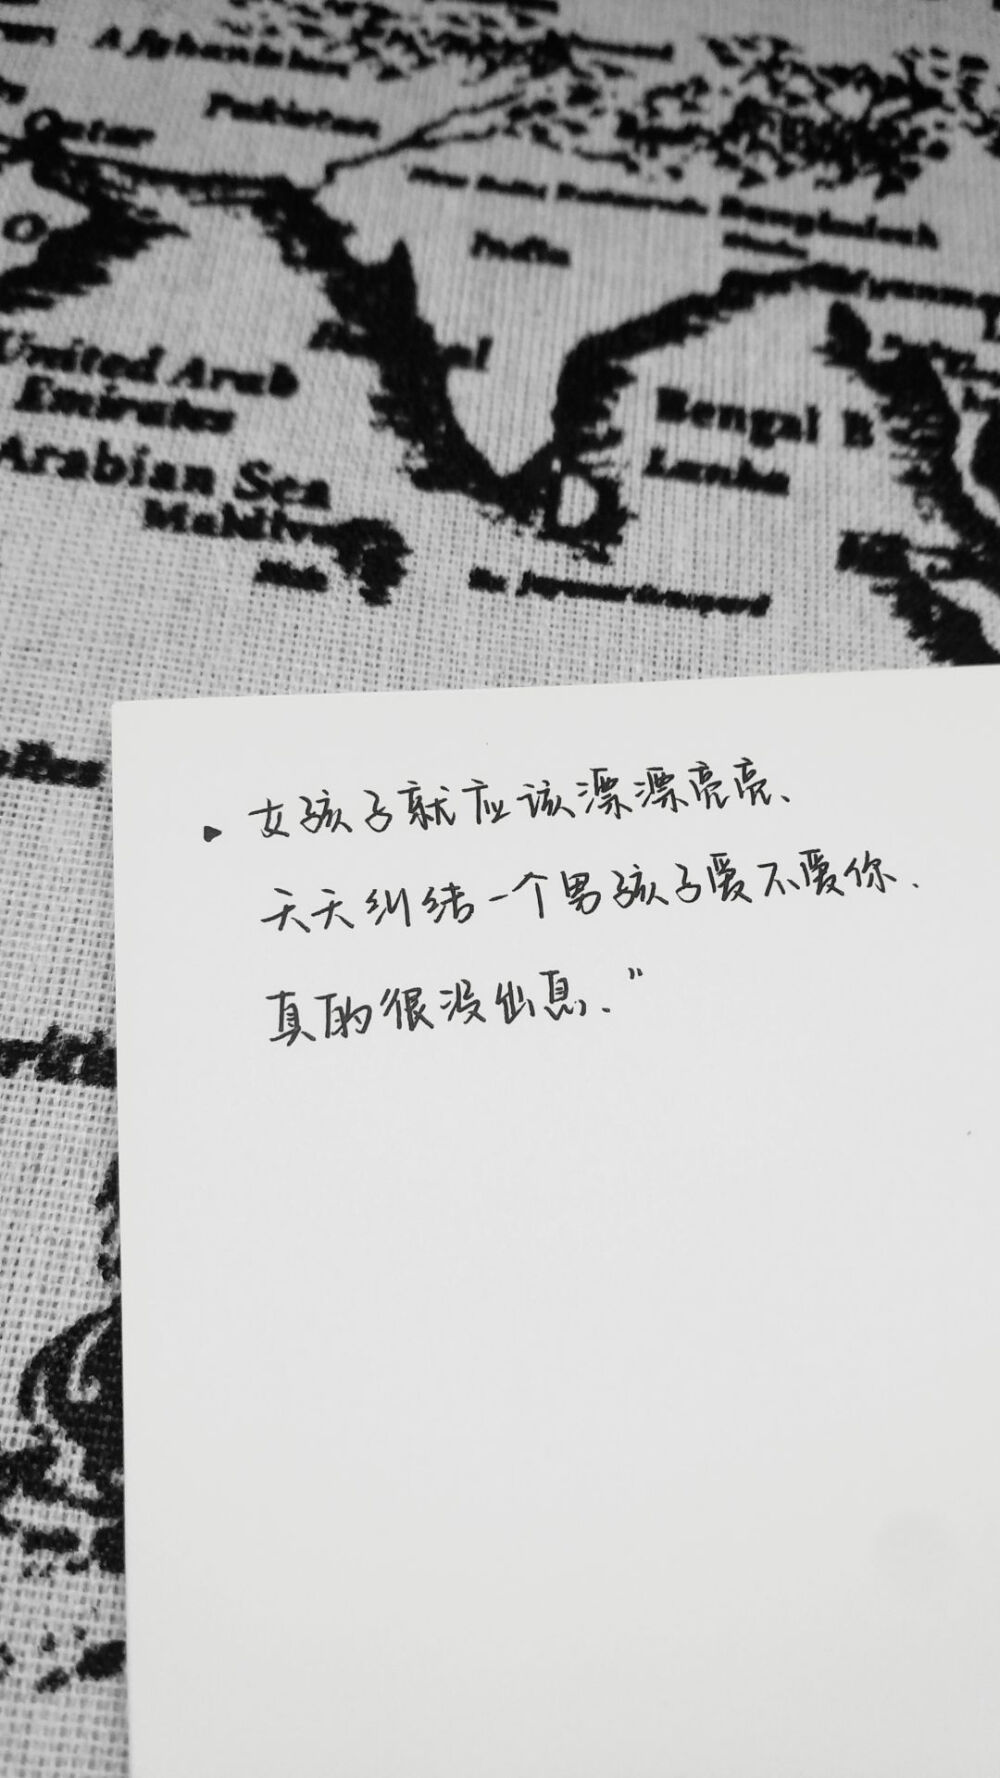 Afghanistan
Pakistan
Qatar
Bangladesh
India
United Arab
Emirates
Bengal B
Lanka
Arabian Sea
Maldives
女孩子就应该漂漂亮亮、
天天纠结一个男孩子爱不爱你.
真的很没出息.”